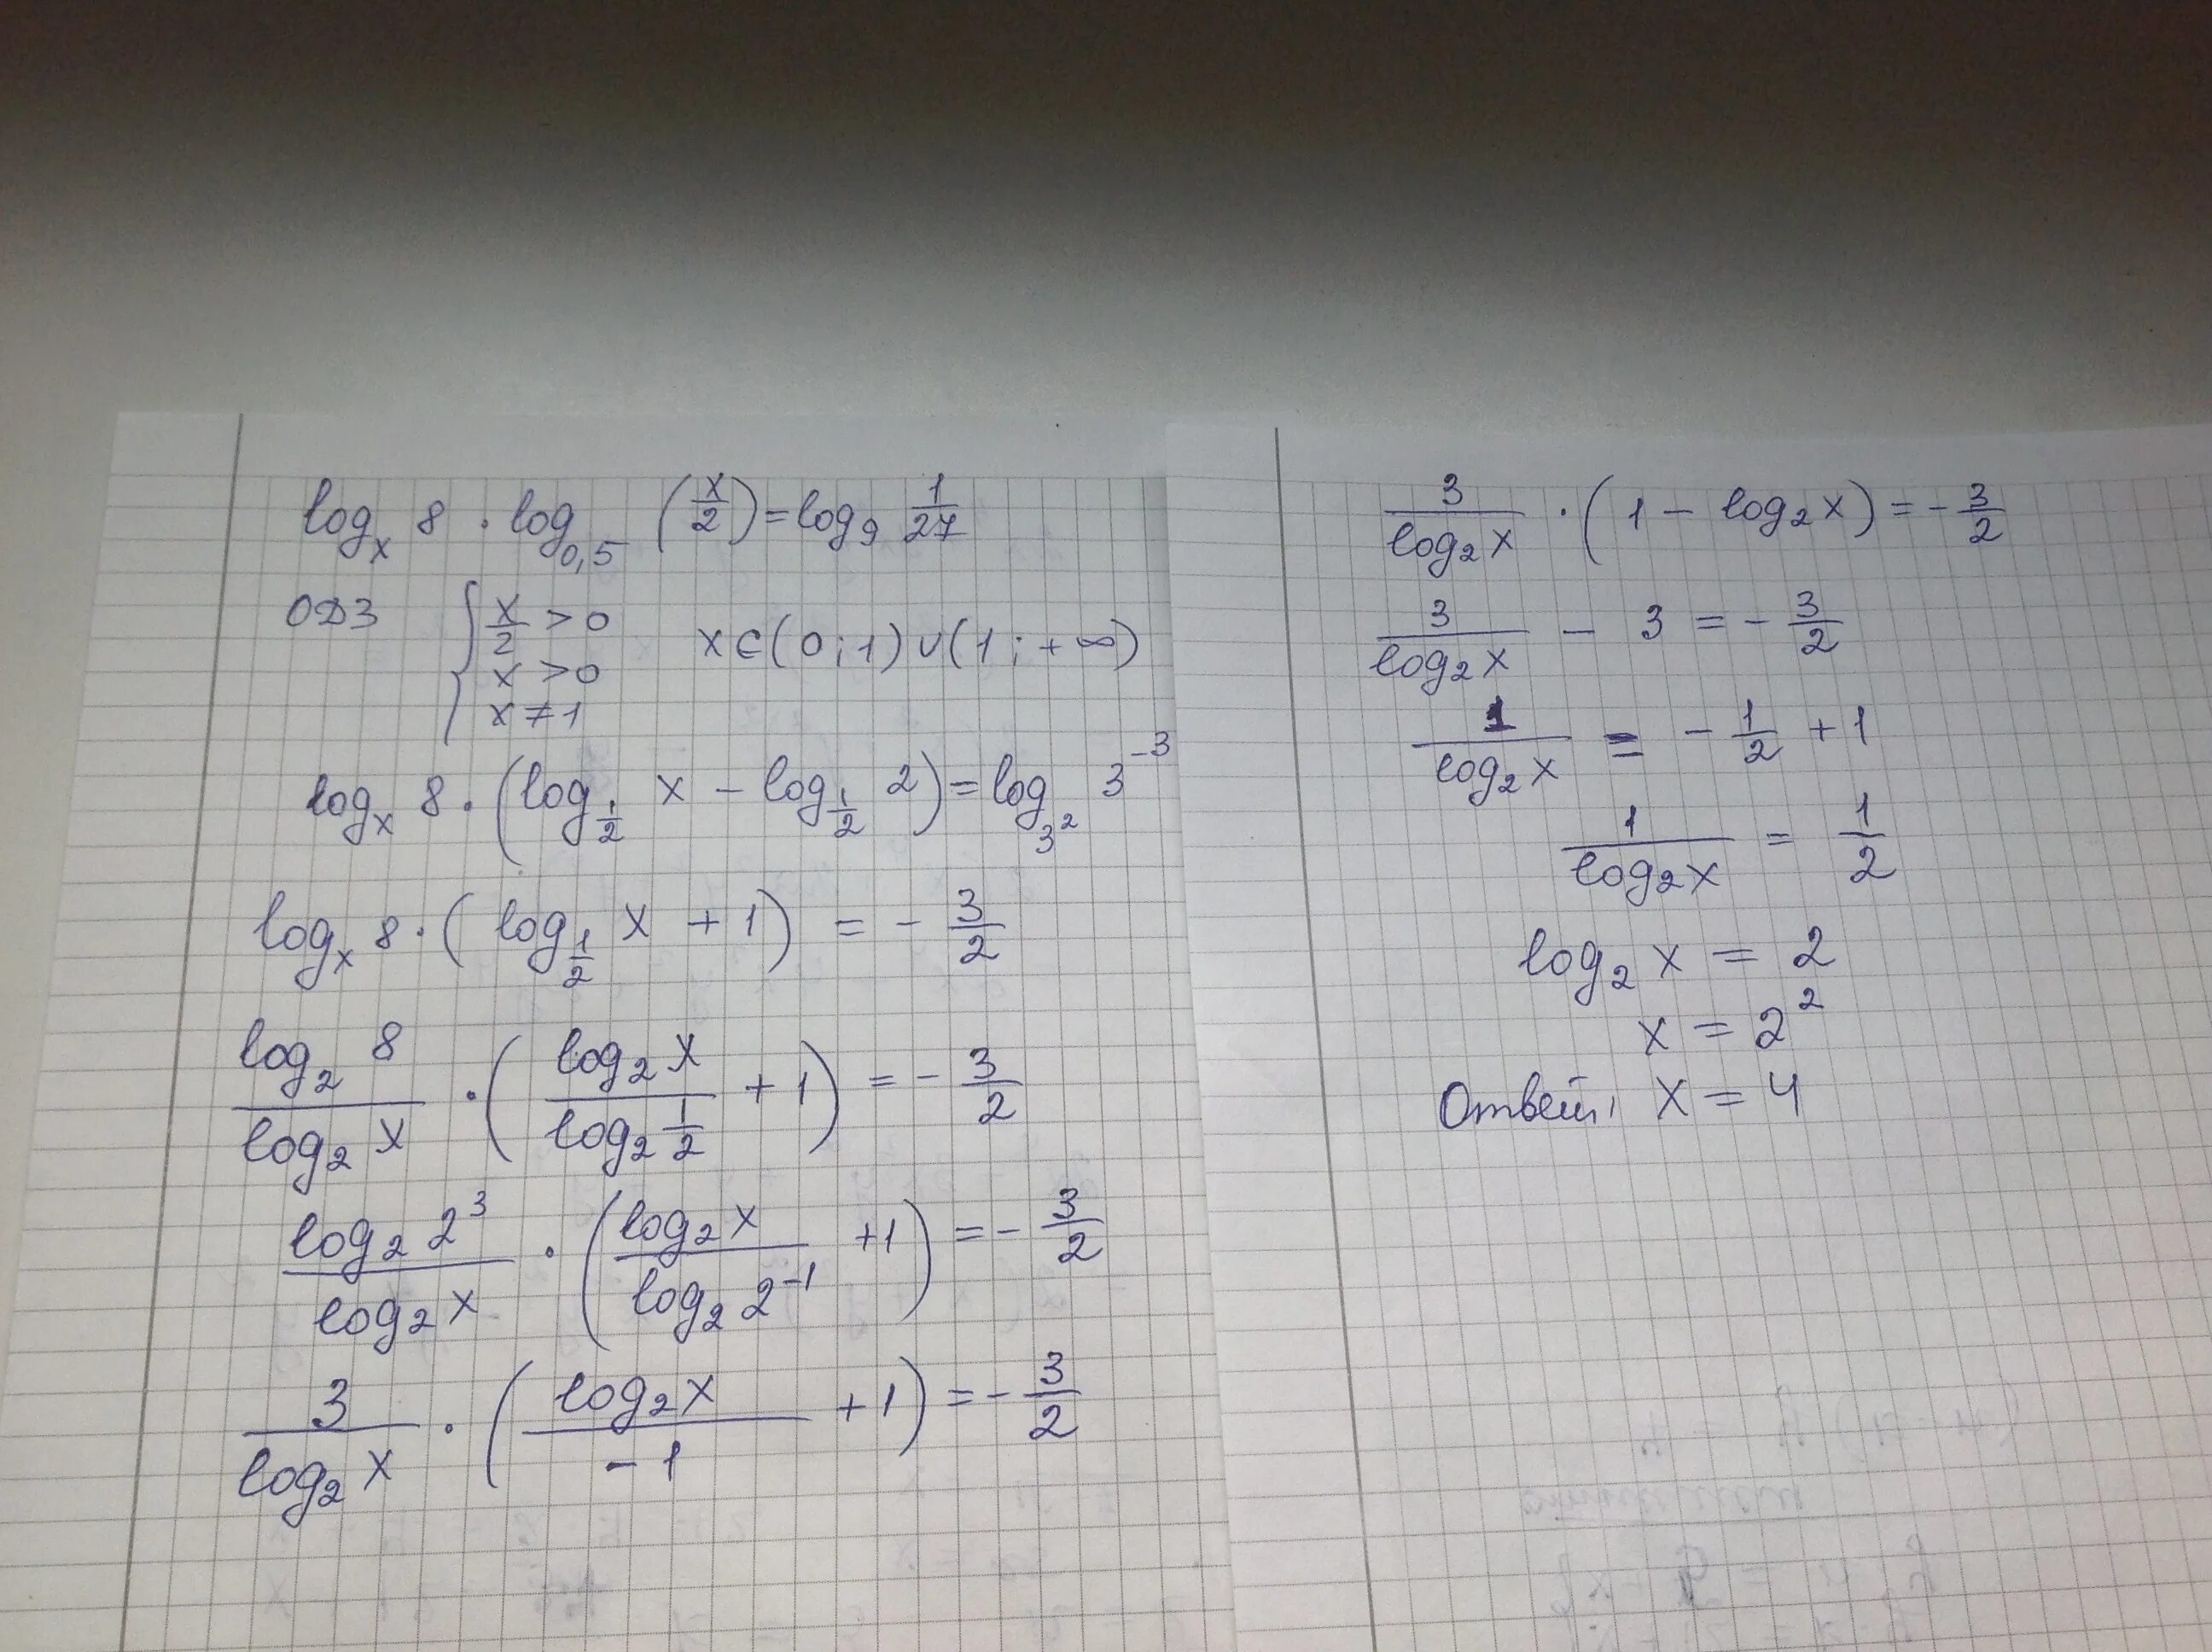 log_x 8 · log_{0,5} (x/2) = log_9 1/27
ОДЗ { x/2 > 0
x > 0
x ≠ 1
x ∈ (0; 1) ∪ (1; +∞)
log_x 8 · (log_{1/2} x − log_{1/2} 2) = log_{3^2} 3^{-3}
log_x 8 · (log_{1/2} x + 1) = − 3/2
log_2 8 / log_2 x · (log_2 x / log_2 1/2 + 1) = − 3/2
log_2 2^3 / log_2 x · (log_2 x / log_2 2^{-1} + 1) = − 3/2
3 / log_2 x · (log_2 x / −1 + 1) = − 3/2
3 / log_2 x · (1 − log_2 x) = − 3/2
3 / log_2 x − 3 = − 3/2
1 / log_2 x = − 1/2 + 1
1 / log_2 x = 1/2
log_2 x = 2
x = 2^2
Ответ: x = 4